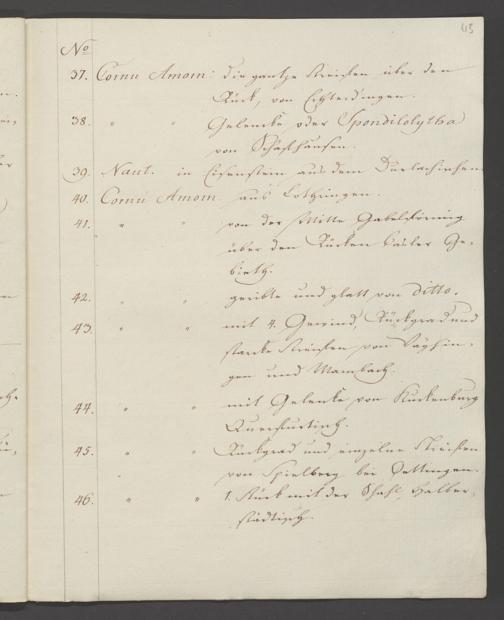 43
No
37. Cornu Amom: die gantze Streiffen über den
Rück, von Echterdingen.
38. " " Gelencke oder Spondilolytha
von Schaffhausen.
39. Naut. in Eisenstein aus dem Durlachischen
40. Cornu Amom aus Lothringen.
41. " " von der Mitte Gabelförmig
über den Rücken Basler Ge-
bieth.
42. " " geribte und glatt von ditto.
43. " " mit 4. Gewind, Rückgrad und
starke Streiffen von
gen und Mambach.
44. " " mit Gelenke von Kuckenburg
Querfurtisch.
45. " " Rückgrad und einzelne Streiffen
von Spielberg bei Oettingen.
46. " " 1. Stück mit der Schahl, Halber-
städtisch.